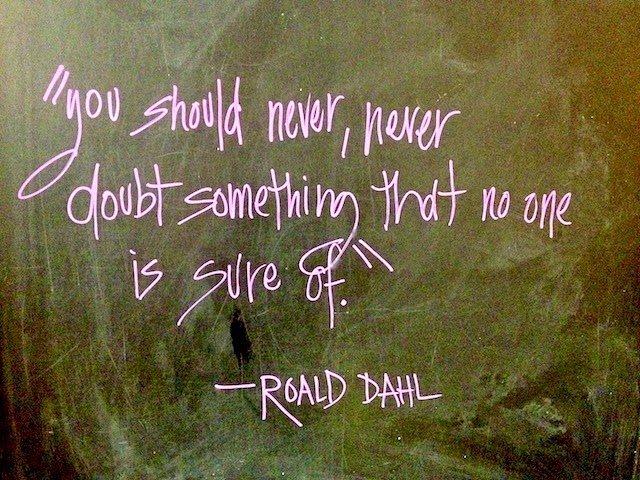 "you should never, never
doubt something that no one
is sure of."
—ROALD DAHL